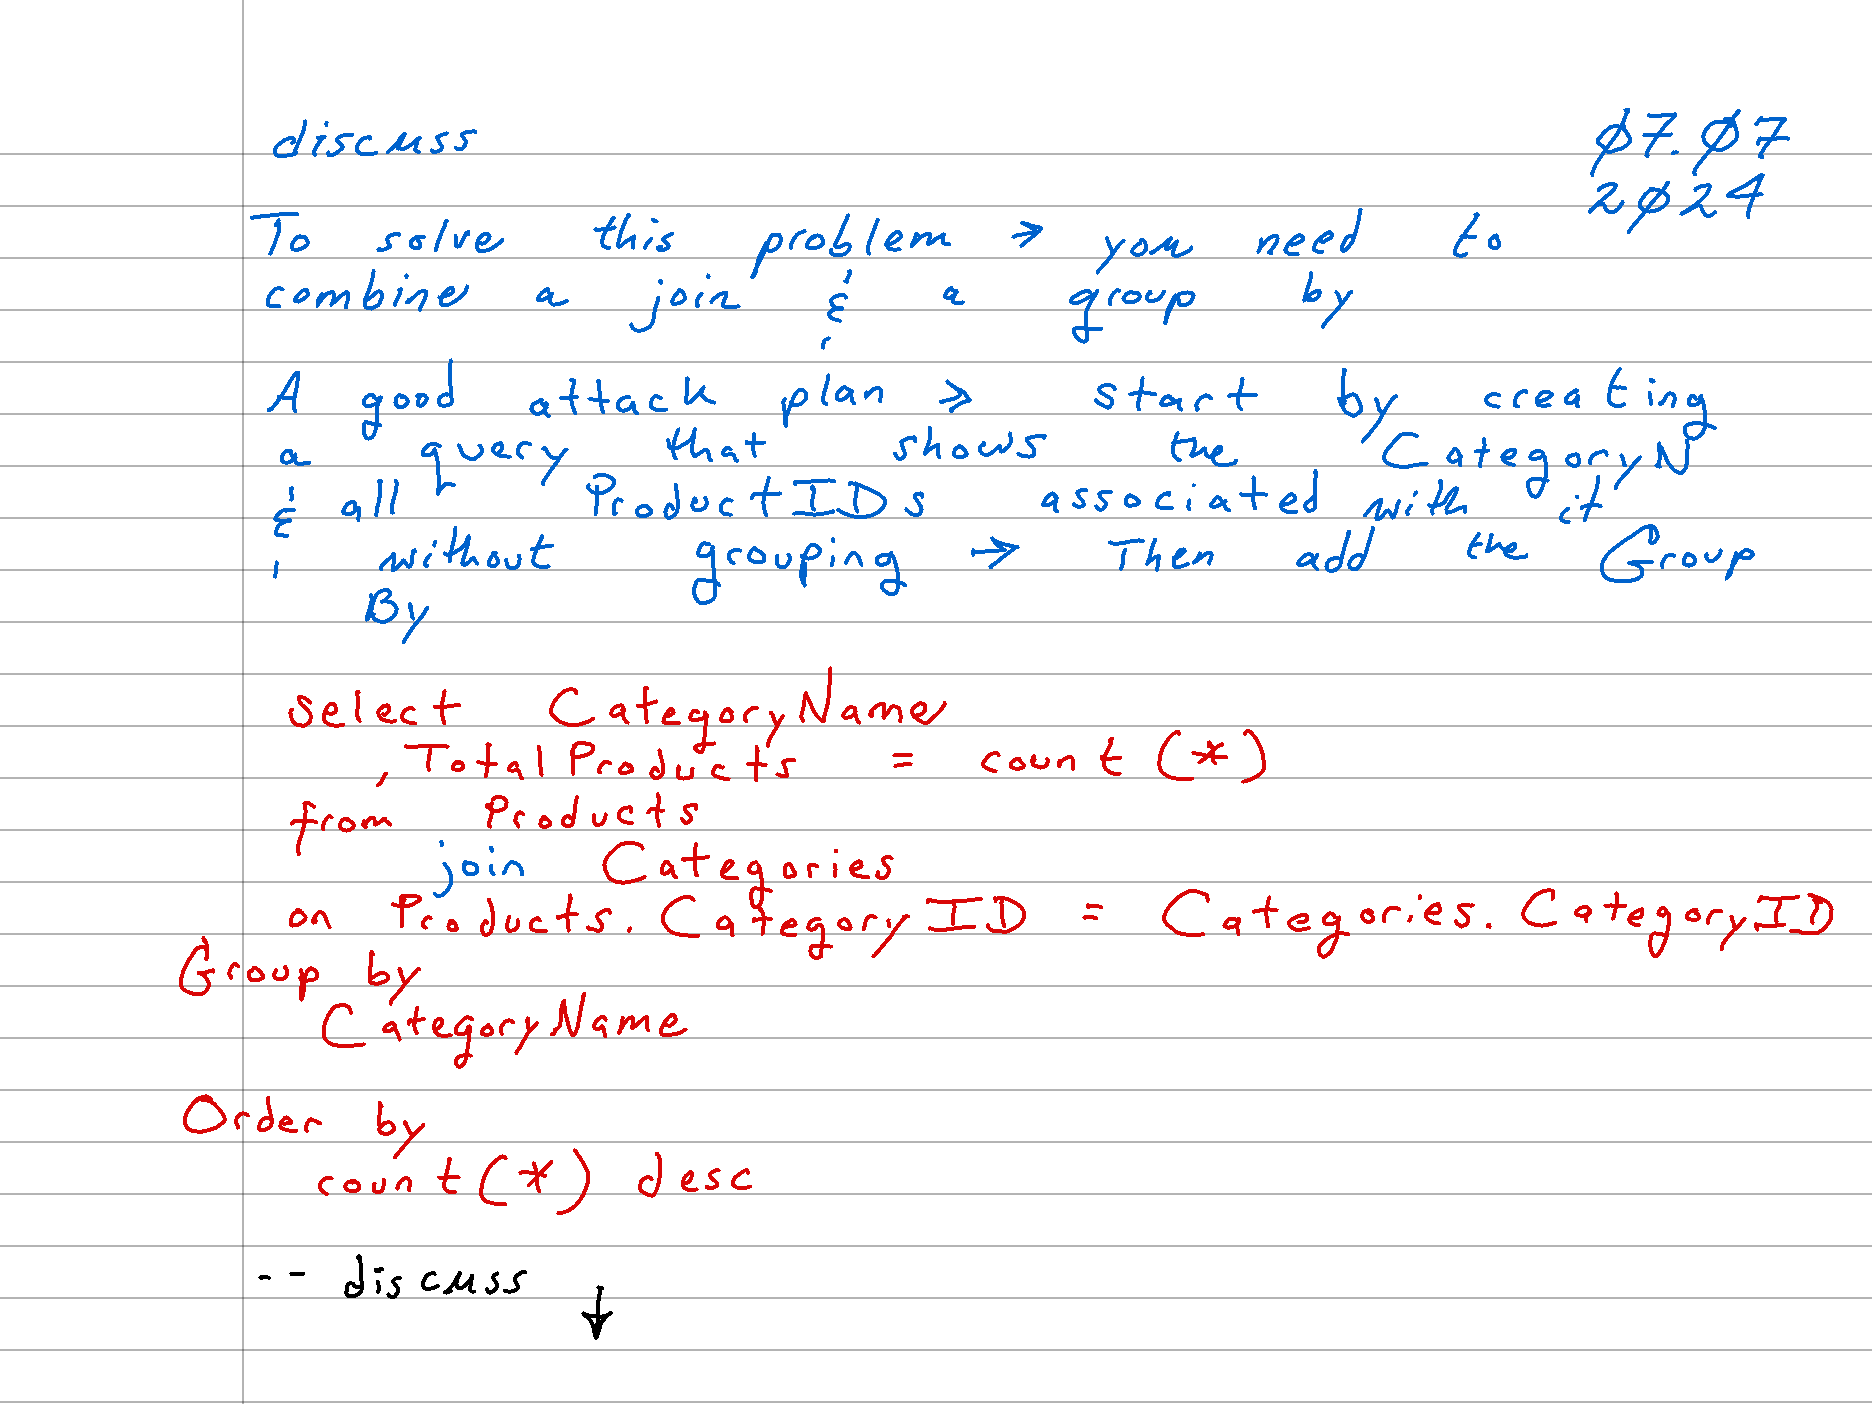 discuss
Ø7.Ø7
2Ø24
To solve this problem → you need to
combine a join & a group by
A good attack plan → start by creating
a query that shows the CategoryN
& all ProductIDs associated with it
without grouping → Then add the Group
By
select CategoryName
,TotalProducts = count (*)
from Products
join Categories
on Products.CategoryID = Categories.CategoryID
Group by
CategoryName
Order by
count(*) desc
-- discuss ↓